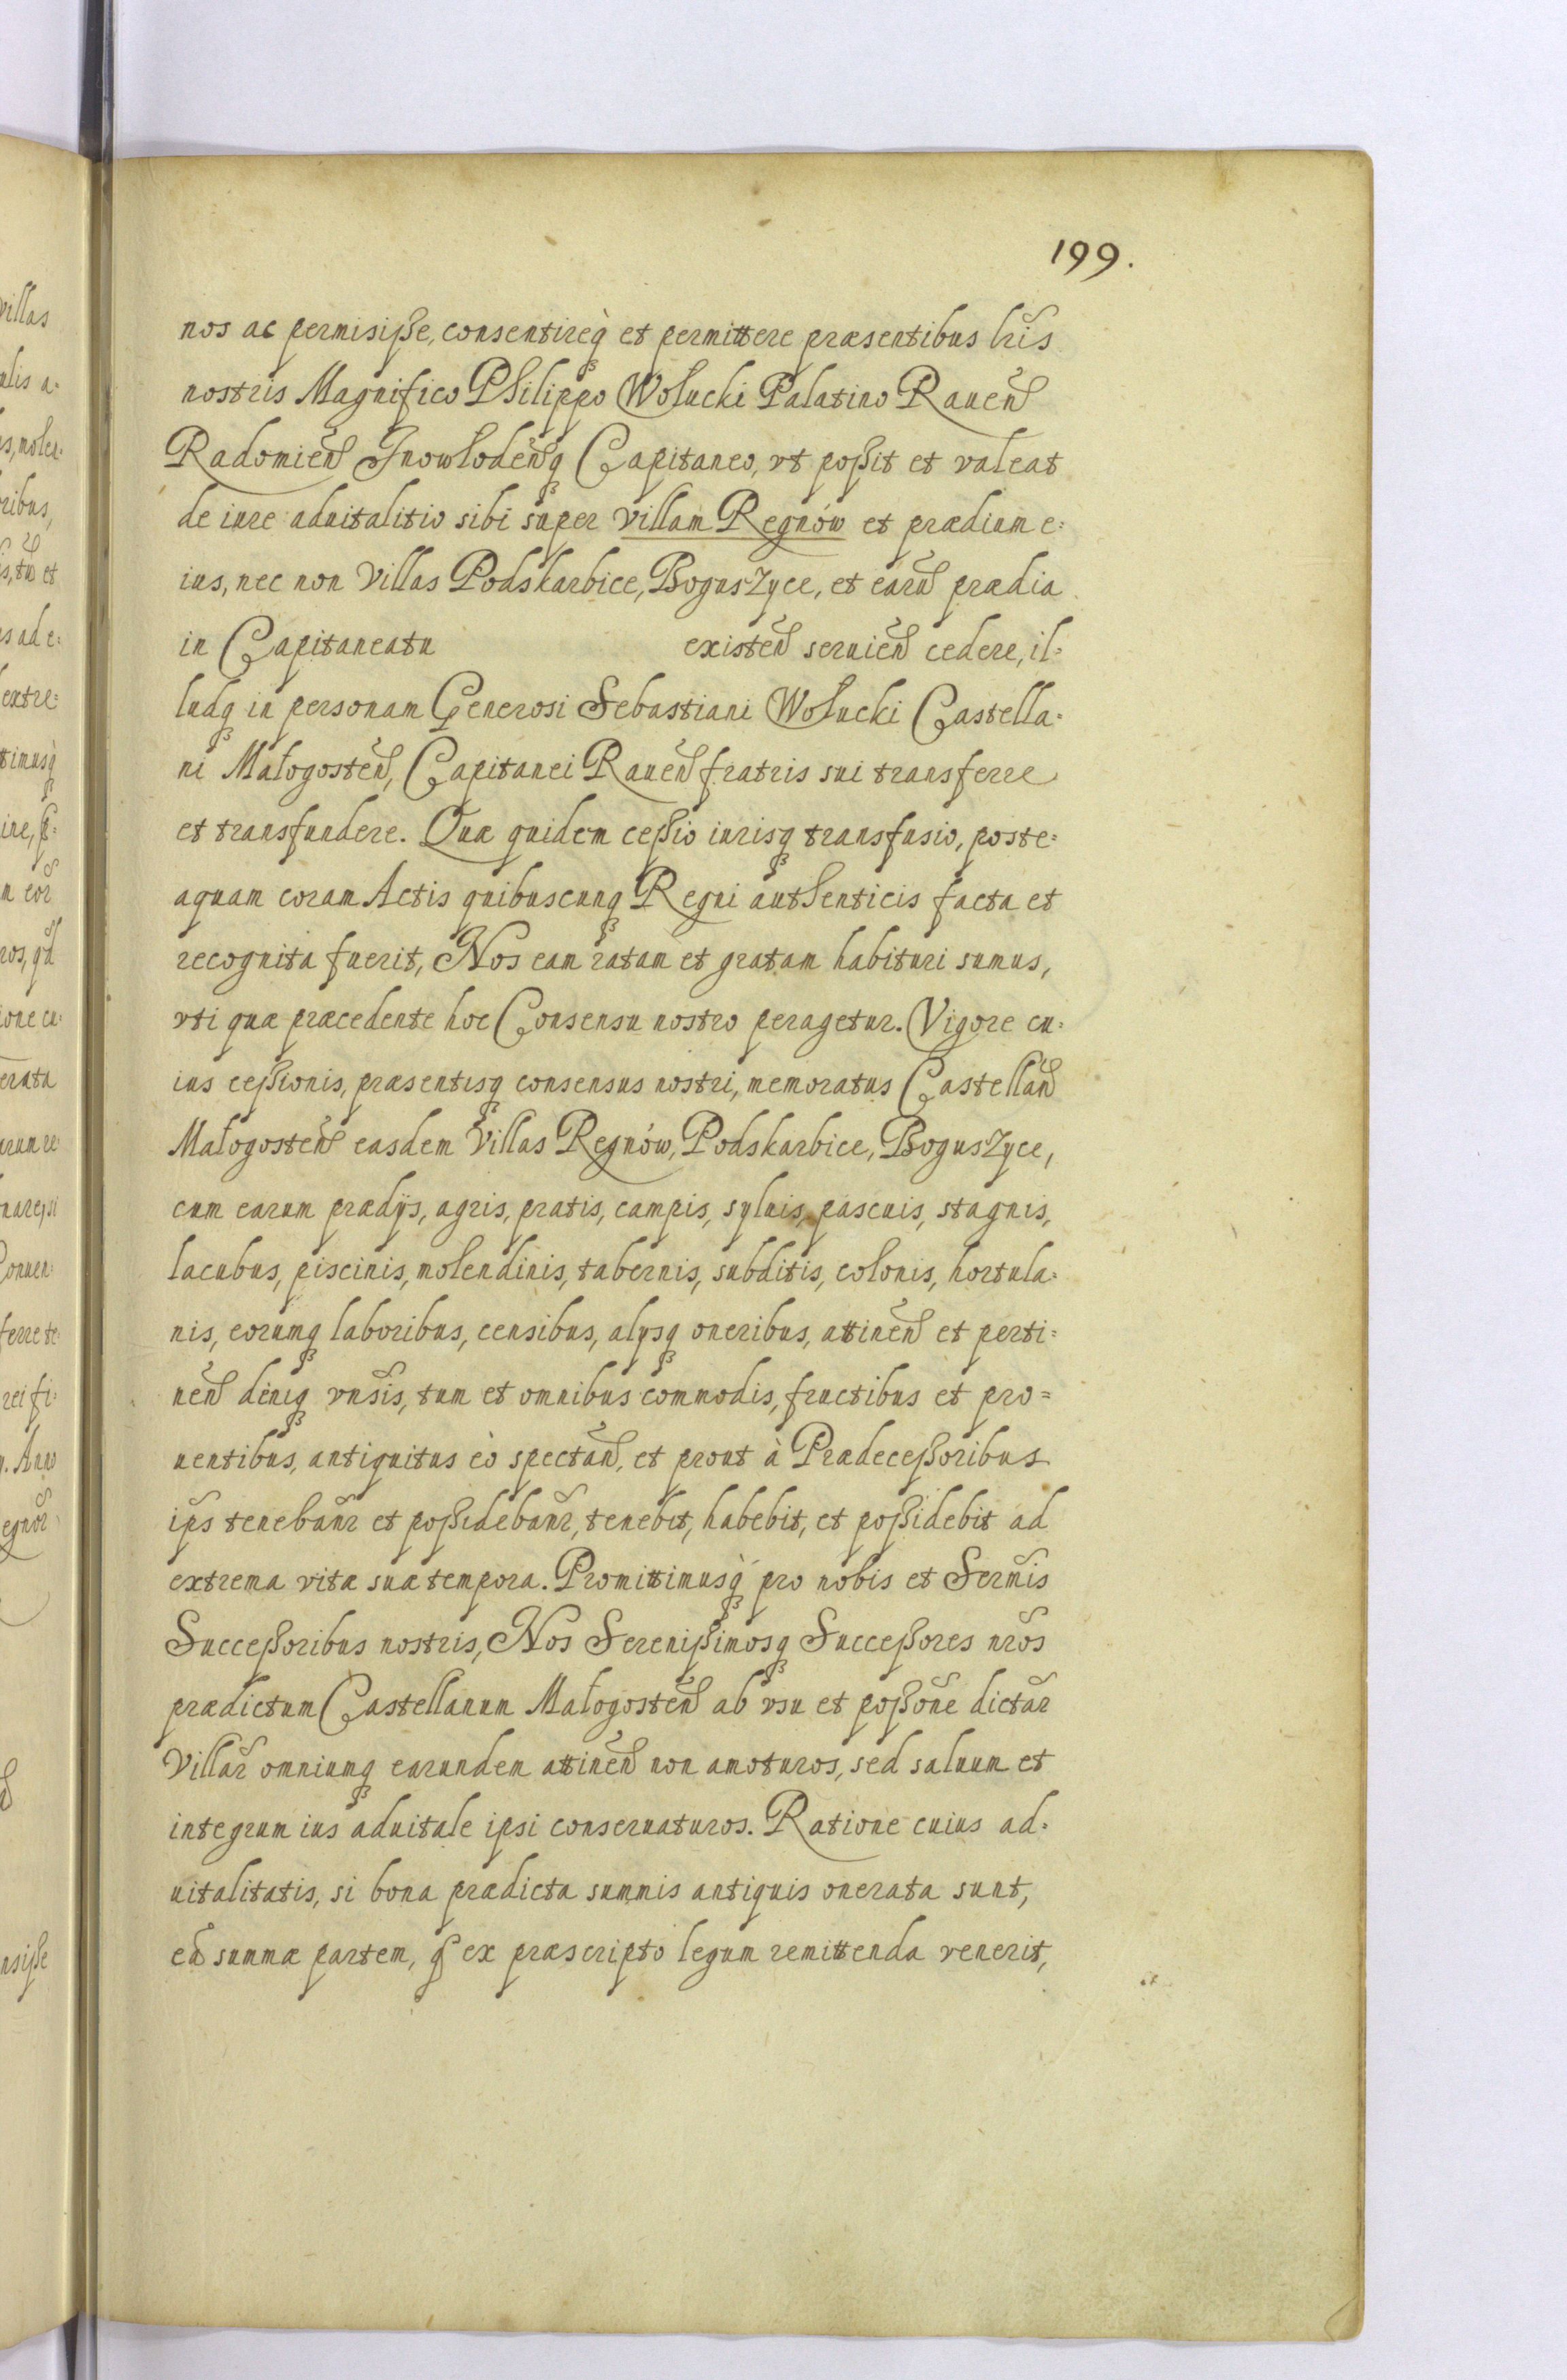 199.
nos ac permisiße, consentireq́ꝫ et permittere præsentibus lr̃is
nostris Magnifico Philippo Wołucki Palatino Raueñ
Radomieñ Inowłodeñqꝫ Capitaneo, vt poßit et valeat
de iure aduitalitio sibi super villam Regnów et prædium e=
ius, nec non Villas Podskarbice, Boguszyce, et earũ prædia
in Capitaneatu existeñ seruieñ cedere, il=
ludqꝫ in personam Generosi Sebastiani Wołucki Castella=
ni Małogosteñ, Capitanei Raueñ fratris sui transferre
et transfundere. Quæ quidem ceßio iurisqꝫ transfusio, poste=
aquam coram Actis quibuscunqꝫ Regni authenticis facta et
recognita fuerit, Nos eam ratam et gratam habituri sumus,
vti quæ præcedente hoc Consensu nostro peragetur. Vigore cu=
ius ceßionis, præsentisqꝫ consensus nostri, memoratus Castellañ
Małogosteñ easdem Villas Regnów, Podskarbice, Boguszyce,
cum earum prædijs, agris, pratis, campis, syluis, pascuis, stagnis,
lacubus, piscinis, molendinis, tabernis, subditis, colonis, hortula=
nis, eorumqꝫ laboribus, censibus, alysqꝫ oneribus, attineñ et perti=
neñ deniqꝫ vnũsis, tum et omnibus commodis, fructibus et pro=
uentibus, antiquitus eò spectañ, et prout à Prædeceßoribus
ip̃s tenebañr et poßidebañr, tenebit, habebit, et poßidebit ad
extrema vitæ suæ tempora. Promittimusq́ꝫ pro nobis et Serm̃is
Succeßoribus nostris, Nos Serenißimosqꝫ Succeßores nr̃os
prædictum Castellanum Małogosteñ ab vsu et poßoñe dictar̃
Villar̃ omniumqꝫ earundem attineñ non amoturos, sed saluum et
integrum ius aduitale ipsi conseruaturos. Ratione cuius ad=
uitalitatis, si bona prædicta summis antiquis onerata sunt,
eã summæ partem, q̃ ex præscripto legum remittenda venerit,